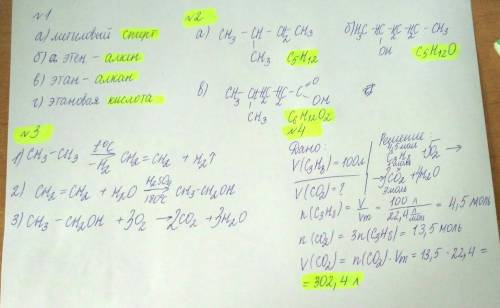 №1
а) метиловый спирт
б) этен - алкин
в) этан - алкан
г) этановая кислота
№2
а) CH3 - CH - CH2 CH3
CH3 C5H12
б) H3C - HC - H2C - H2C - CH3
OH C5H12O
в) CH3 - CH - H2C - H2C - C =O
CH3 OH
C6H12O2
№3
1) CH3 - CH3 t°C -H2 CH2 = CH2 + H2↑
2) CH2 = CH2 + H2O H2SO4 180°C CH3 - CH2OH
3) CH3 - CH2OH + 3O2 → 2CO2 + 3H2O
№4
Дано:
V(C3H8) = 100л
V(CO2) = ?
Решение:
C3H8 + O2 →
CO2 + H2O
3моль
n(C3H8) = V/Vm = 100 л/22,4 л/моль = 4,5 моль
n(CO2) = 3n(C3H8) = 13,5 моль
V(CO2) = n(CO2) · Vm = 13,5 · 22,4 =
= 302,4 л